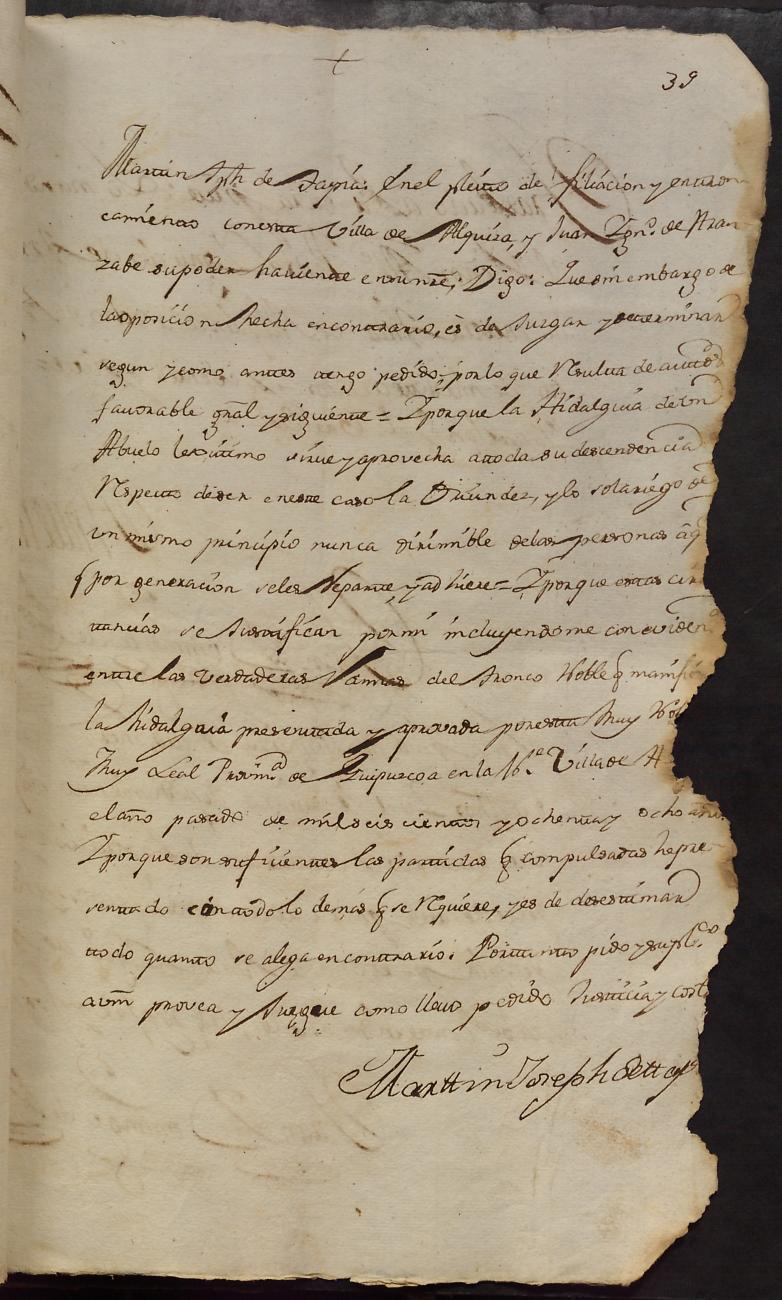 +
39
Martin Jph de Tapia: En el pleito de filiacion y entron
camiento con esta Villa de Alquiza, y Juan Ygn.º de Aran
zabe su poder haviente en su nre; Digo: Que sin embargo de
la oposicion hecha en contrario, es de Juzgar y determinar
segun y como antes tengo pedido: por lo que Resulta de autos
favorable gñal y siguiente = Y porque la Hidalguia de un
Abuelo lexitimo sirve y aprovecha a ttoda su descendencia
Respecto de ser en este caso la Oriundez, y lo solariego de
un mismo principio nunca dirimible de las personas aq
q por generacion se les Reparte, y adhiere = Y porque estas cir
tancias se Justifican por mi incluyendome con eviden
entre las verdaderas Ramas del tronco Noble q manifi
la hidalguia presentada y aprovada por esta Muy Nob
Muy Leal Provinª de Guipuzcoa en la N.ª Villa de A
el año pasado de mil seis cientos y ochenta y ocho años
Y porque son suficientes las partidas q compulsadas he pre
sentado con todo lo demas q se Requiere, y es de desestimar
ttodo quanto se alega en contrario: Por tanto pido y supl.co
a vm provea y Juzgue como llevo pedido Justicia y cost
Marttin Joseph de ttap